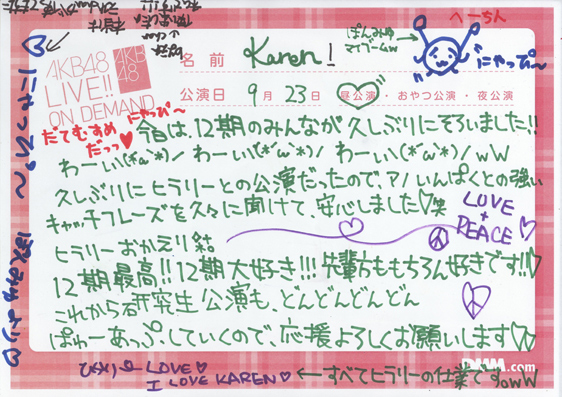 AKB48
LIVE!!
ON DEMAND
AKB
48
名前 Karen!
ぽんみゆ
マイブームw
へーちん
にゃっぴ〜
公演日 9月23日 昼公演・おやつ公演・夜公演
だてむすめ
だっっ
にゃっぴ〜
今日は、12期のみんなが久しぶりにそろいました!!
わーい(*´ω`*)/ わーい(*´ω`*)/ わーい(*´ω`*)/ wW
久しぶりにヒラリーとの公演だったので、アノいんぱくとの強い
キャッチフレーズを久々に聞けて、安心しました♡笑
LOVE
+
PEACE♡
ヒラリーおかえり結
12期最高!!12期大好き!!!先輩方ももちろん好きです!!♡
これから研究生公演も、どんどんどんどん
ぱわーあっぷしていくので、応援よろしくお願いします♡♡
DMM.com
LOVE♡
I LOVE KAREN♡ ←すべてヒラリーの仕業ですowW
にゃっぴ〜